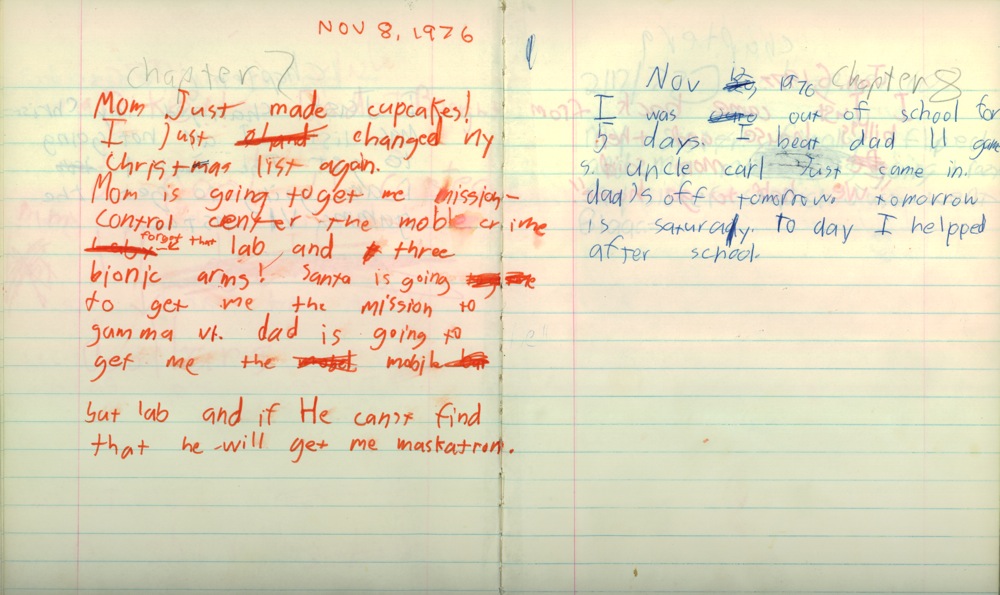 NOV 8, 1976
chapter 7
Mom Just made cupcakes!
I just changed my
Christmas list again.
Mom is going to get me mission-
control center the moble crime
forget that lab and three
bionic arms! Santa is going
to get me the mission to
gamma vt. dad is going to
get me the mobile
but lab and if He canst find
that he will get me maskatron.
Nov 12, 1976 Chapter 8
I was out of school for
5 days. I beat dad 11 game
s. uncle carl Just came in.
dad's off tomorrow. tomorrow
is saturady. To day I helpped
after school.